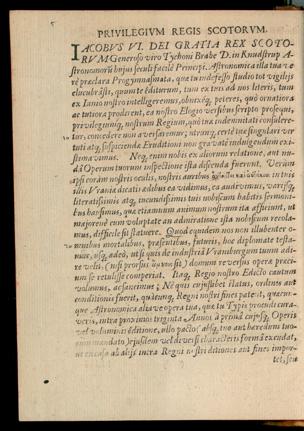 PRIVILEGIVM REGIS SCOTORVM.
IACOBVS VI. DEI GRATIA REX SCOTO-
RVM Generoso viro Tychoni Brahe D. in Knudstrup A-
stronomorū hujus seculi facilè Principi. Astronomica illa tua ve-
rè præclara Progymnasmata, quæ tu indefesso studio tot vigiliis
elucubrâsti, quum te editurum, tum ex tuis ad nos literis, tum
ex Iano nostro intelligeremus, obnixéq; peteres, quò ornatiora
ac tutiora prodirent, ea nostro Elogio versibus scripto proseque,
privilegiumq; nostrum Regium, quò tua indemnitati consulere-
tur, concedere non aversaremur; utrumq; certè tuæ singulari vir-
tuti atq; suspiciendæ Eruditioni non gravatè indulgendum exi-
stimavimus. Neq; enim nobis ex aliorum relatione, aut nu-
dâ Operum tuorum inspectione ista discenda fuerunt. Verùm
ipsi coràm nostris oculis, nostris auribus in tuis
illis Vraniæ dicatis ædibus ea vidimus, ea audivimus, varijsq;
literatissimis atq; jucundissimis tuis nobiscum habitis sermoni-
bus hausimus, quæ etiamnum animum nostrum ita afficiunt, ut
majorene cum voluptate an admiratione ista nobiscum recola-
mus, difficile sit statuere. Quod equidem nos non illubenter o-
mnibus mortalibus, præsentibus, futuris, hoc diplomate testa-
mur, usq; adeò, ut si quis de industriâ Vraniburgum tuum adi-
re velit, (nisi prorsus sit) domum reversus operæ preci-
um se retulisse comperiat. Itaq; Regio nostro Edicto cautum
volumus, ac sancimus; Nè quis cujuscumq; status, ordinis aut
conditionis fuerit, quatenus, Regni nostri fines patent, quæcum-
que Astronomica aliave opera tua, quæ tu Typis procudi cura-
veris, intra proximos triginta Annos à primâ cujusq; Operis
vel voluminis editione, ullo pacto (absq; tuo aut hæredum tuo-
rum mandato) ejusdem vel diversi characteris formâ excudat,
ut excusa ab alijs intra Regni nostri ditiones aut fines impor-
tet, seu